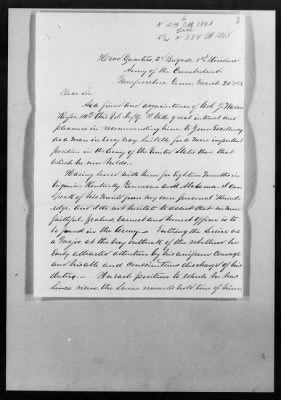 2
Head Quarters, 2d Brigade 1st Division
Army of the Cumberland
Murfreesboro Tenn. March 20 1863
Dear Sir
As a friend and acquaintance of Col. J. Warren
Keifer 110th Ohio Vol. Infty. I take great interest and
pleasure in recommending him to Your Excellency
as a man in every way suitable for a more important
position in the Army of the United States than that
which he now holds.
Having served with him for Eighteen Months in
Virginia Kentucky Tennessee and Alabama I can
speak of his merits from my own personal knowl-
edge and I do not hesitate to assert that no more
faithful, zealous, earnest and honest officer is to
be found in the Army. Entering the Service as
a Major at the very outbreak of the rebellion he
early attracted attention by his uniform courage
and his able and conscientious discharge of his
duties. In each position to which he has
since risen, the same remarks hold true of him